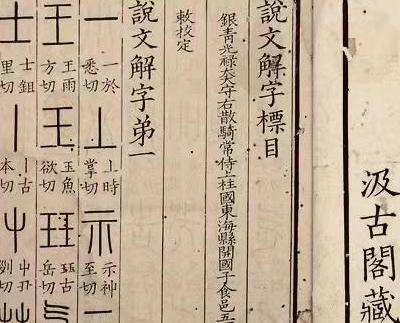 汲古閣藏
說文解字標目
銀青光祿大夫守右散騎常侍上柱國東海縣開國子食邑五
敕挍定
說文解字弟一
一 一於悉切 丄 丄時掌切 示 示神至切
王 王雨方切 王 玉魚欲切 玨 玨古岳切 气
士 士鉏里切 丨 丨古本切 屮 屮丑列切 艸